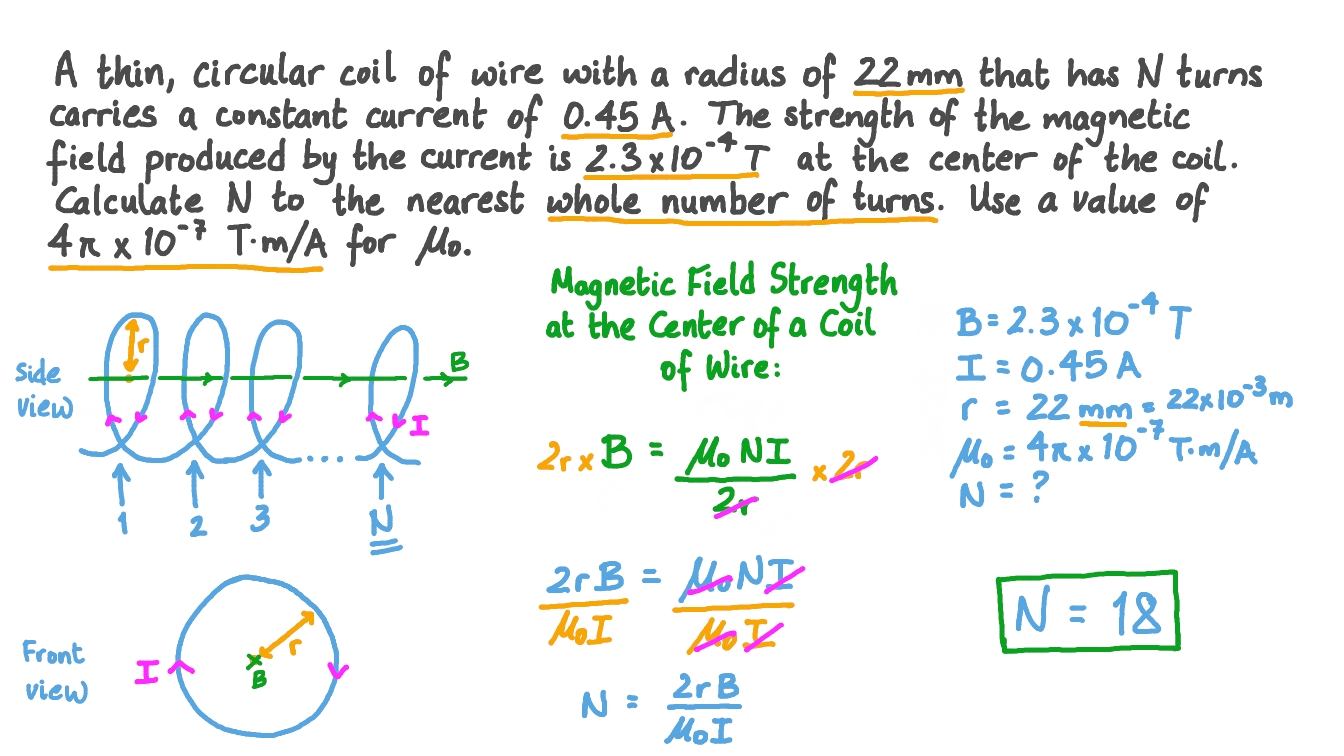 A thin, circular coil of wire with a radius of 22 mm that has N turns
carries a constant current of 0.45 A. The strength of the magnetic
field produced by the current is 2.3 x 10⁻⁴ T at the center of the coil.
Calculate N to the nearest whole number of turns. Use a value of
4π x 10⁻⁷ T·m/A for μ₀.
Side
view
r
B
I
1
2
3
....
N
Front
view
I
r
x
B
Magnetic Field Strength
at the Center of a Coil
of Wire:
2r x B = μ₀NI / 2r x 2r
2rB / μ₀I = μ₀NI / μ₀I
N = 2rB / μ₀I
B = 2.3 x 10⁻⁴ T
I = 0.45 A
r = 22 mm = 22x10⁻³ m
μ₀ = 4π x 10⁻⁷ T·m/A
N = ?
N = 18